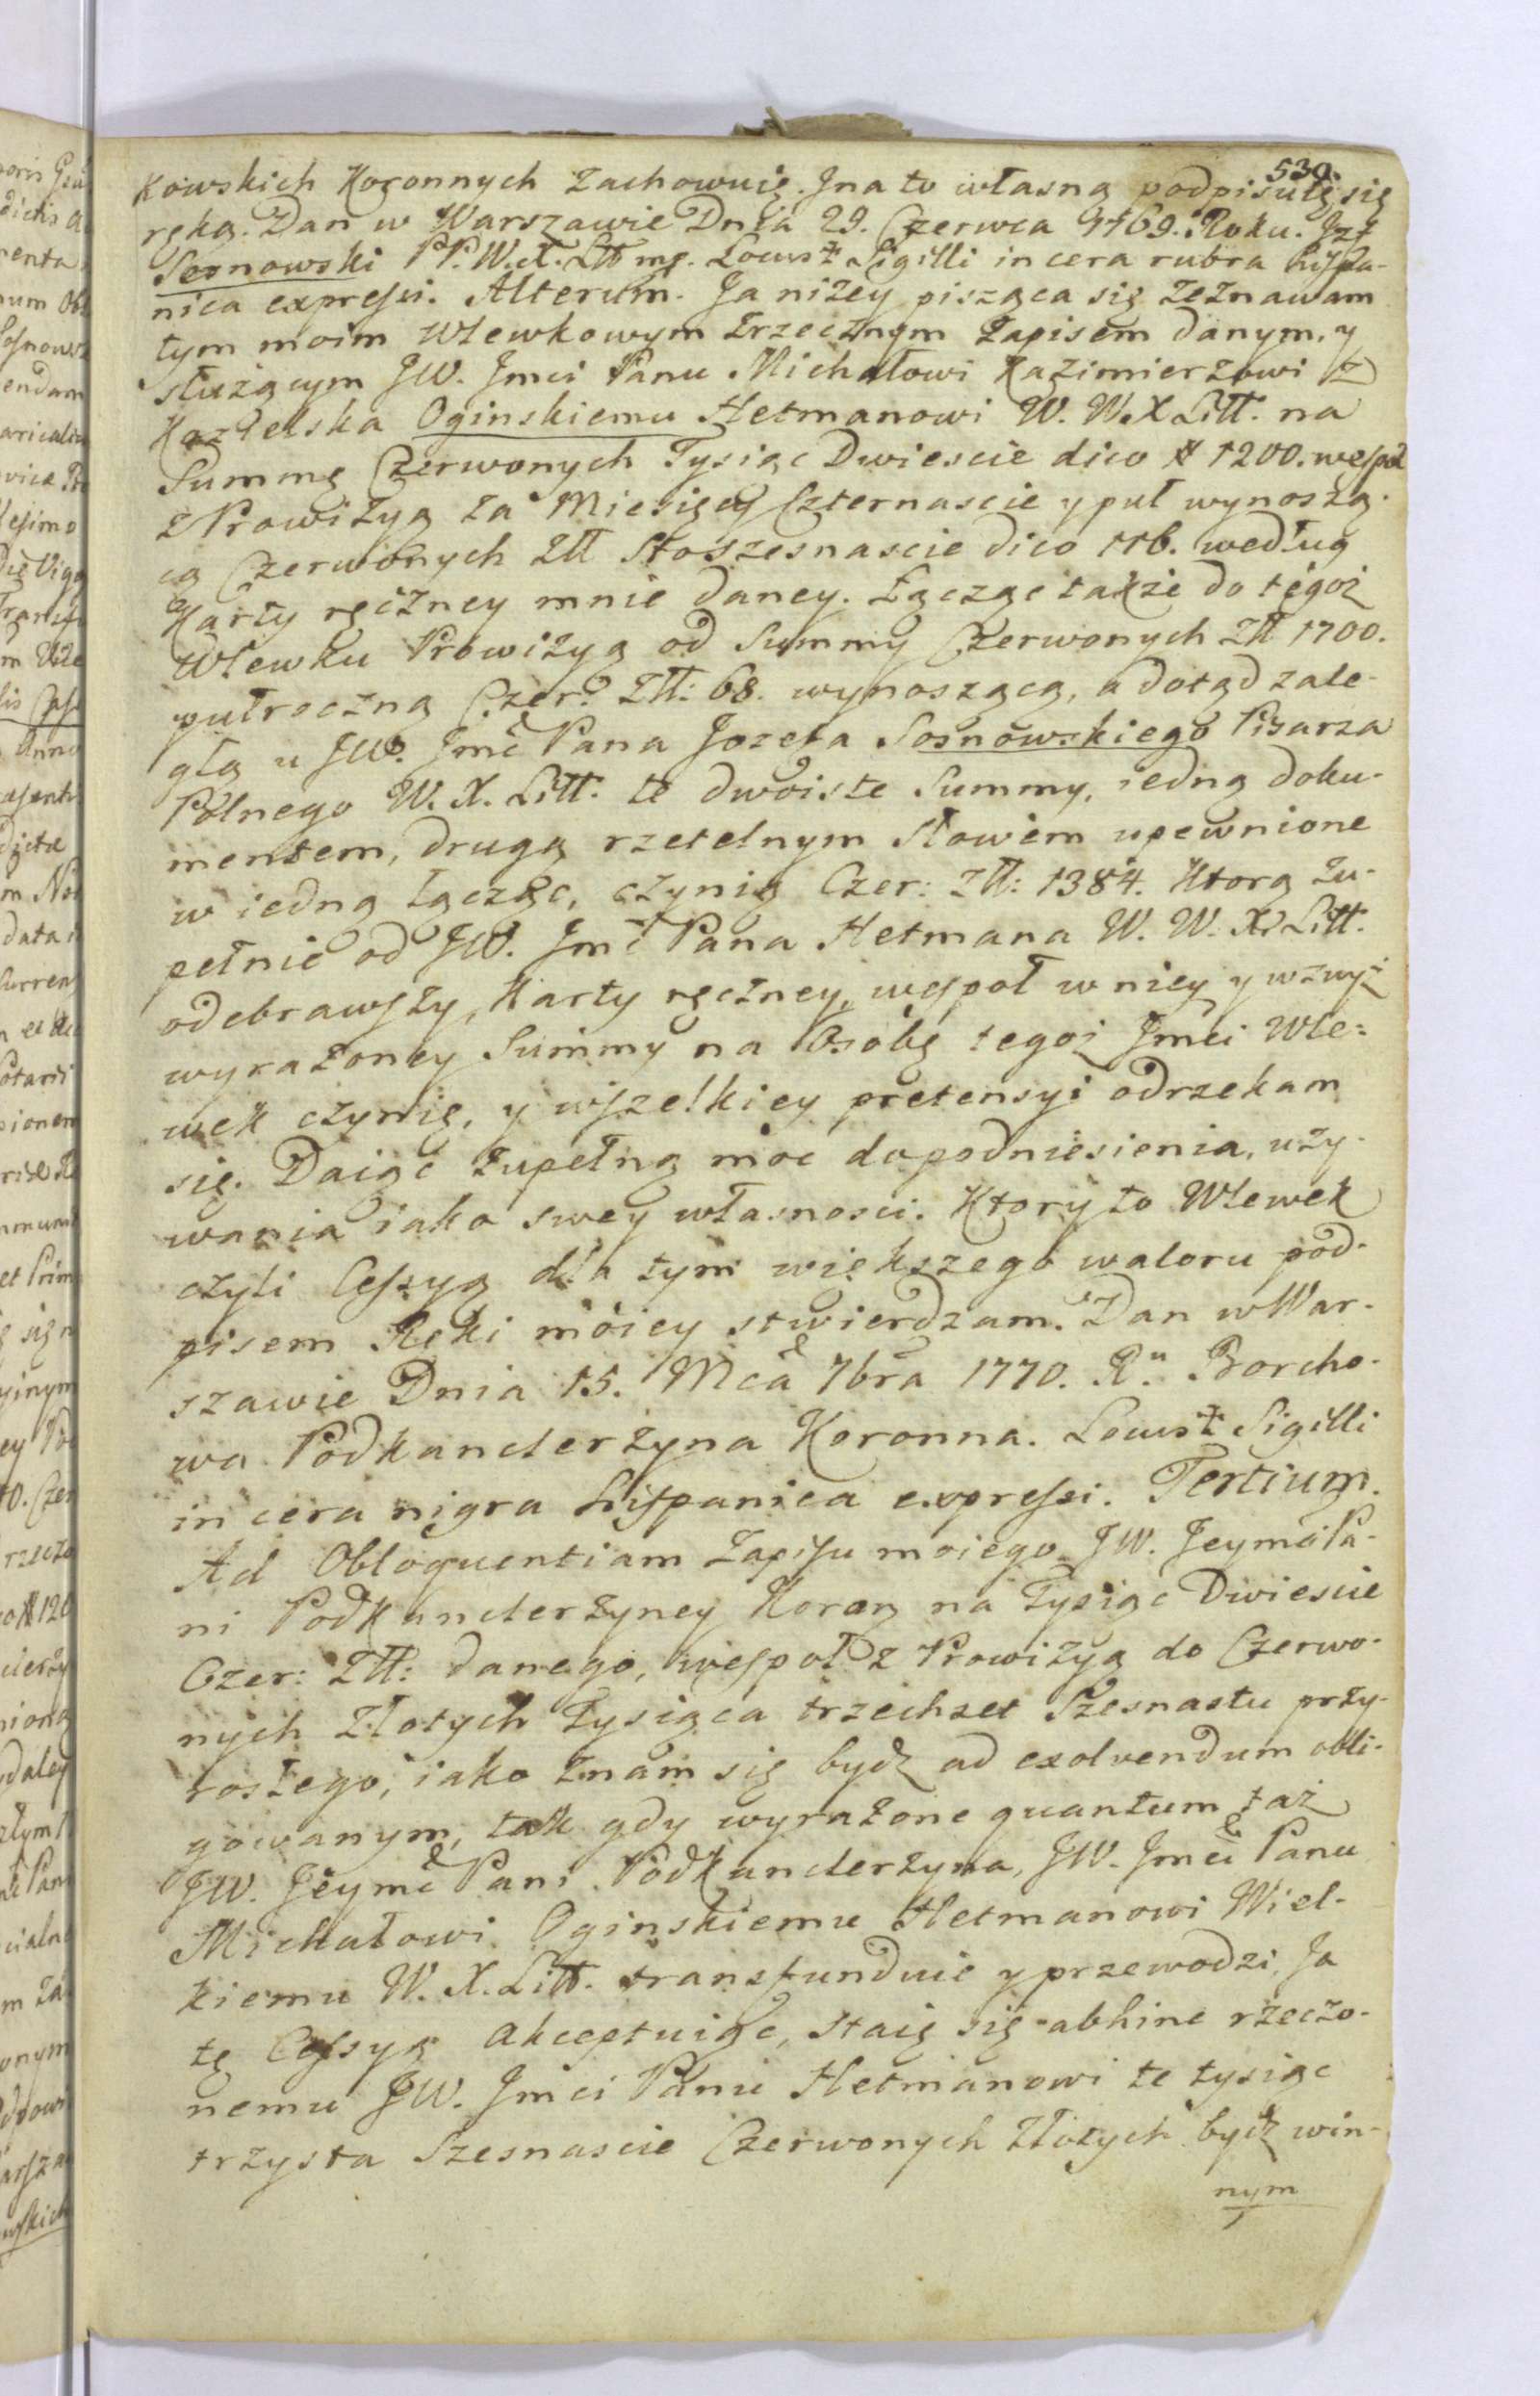 530.
kowskich Koronnych zachowuię. Jna to własną podpisuię się
ręką. Dan w Warszawie Dnia 29. Czerwca 1769. Roku. Jzf
Sosnowski PP. W. X. Litt mp. Locus Sigilli in cera rubra hispa-
nica expressi. Alterum. Ja niżey pisząca się zeznawam
tym moim Wlewkowym Wrzecznym zapisem danym, y
służącym JW. Jmci Panu Michałowi Kazimierzowi z
Kozielska Oginskiemu Hetmanowi W. W. X Litt. na
Summę Czerwonych Tysiąc Dwiescie dico # 1200. wespoł
z Prowizyą za Miesięcy Czternascie y puł wynoszą-
cą Czerwonych Złł Stoszesnascie dico 116. według
Karty ręczney mnie daney. Łącząc także do tegoż
Wlewku Prowizyą od Summy Czerwonych Złł 1700.
pułroczną Czer: Złł: 68. wynoszącą, a dotąd zale-
głą u JW. Jmć Pana Jozefa Sosnowskiego Pisarza
Polnego W. X. Litt. te dwoiste Summy, iedną doku-
mentem, drugą rzetelnym Słowem upewnione
w iedną łącząc, czynią Czer: Złł: 1384. Ktorą zu-
pełnie od JW. Jmć Pana Hetmana W. W. X. Litt.
odebrawszy, Karty ręczney, wespoł w niey y wzwyż
wyrażoney Summy na Osobę tegoż Jmci Wle=
wek czynię, y wszelkiey pretensyi odrzekam
się. Daiąc zupełną moc do podniesienia, uży-
wania iako swey własnosci. Ktory to Wlewek
czyli Cessyą dla tym większego waloru pod-
pisem Ręki moiey stwierdzam. Dan w War-
szawie Dnia 15. Mca 7bra 1770. Ru Borcho-
wa Podkanclerzyna Koronna. Locus Sigilli
in cera nigra hispanica expressi. Tertium.
Ad Obloquentiam Zapisu moiego JW. Jeymć Pa-
ni Podkanclerzyney Koron na Tysiąc Dwiescie
Czer: Złł: danego, wespoł z Prowizyą do Czerwo-
nych Złotych Tysiąca trzechset Szesnastu przy-
rosłego, iako znam się bydź ad exolvendum obli-
gowanym, tak gdy wyrażone quantum taż
JW. Jeymć Pani Podkanclerzyna, JW. Jmći Panu
Michałowi Oginskiemu Hetmanowi Wiel-
kiemu W. X. Litt. transfunduie y przewodzi, Ja
tę Cessyą Akceptuiąc, Staię się abhinc rzeczo-
nemu JW. Jmci Panu Hetmanowi te tysiąc
trzysta Szesnascie Czerwonych Złotych bydź win-
nym